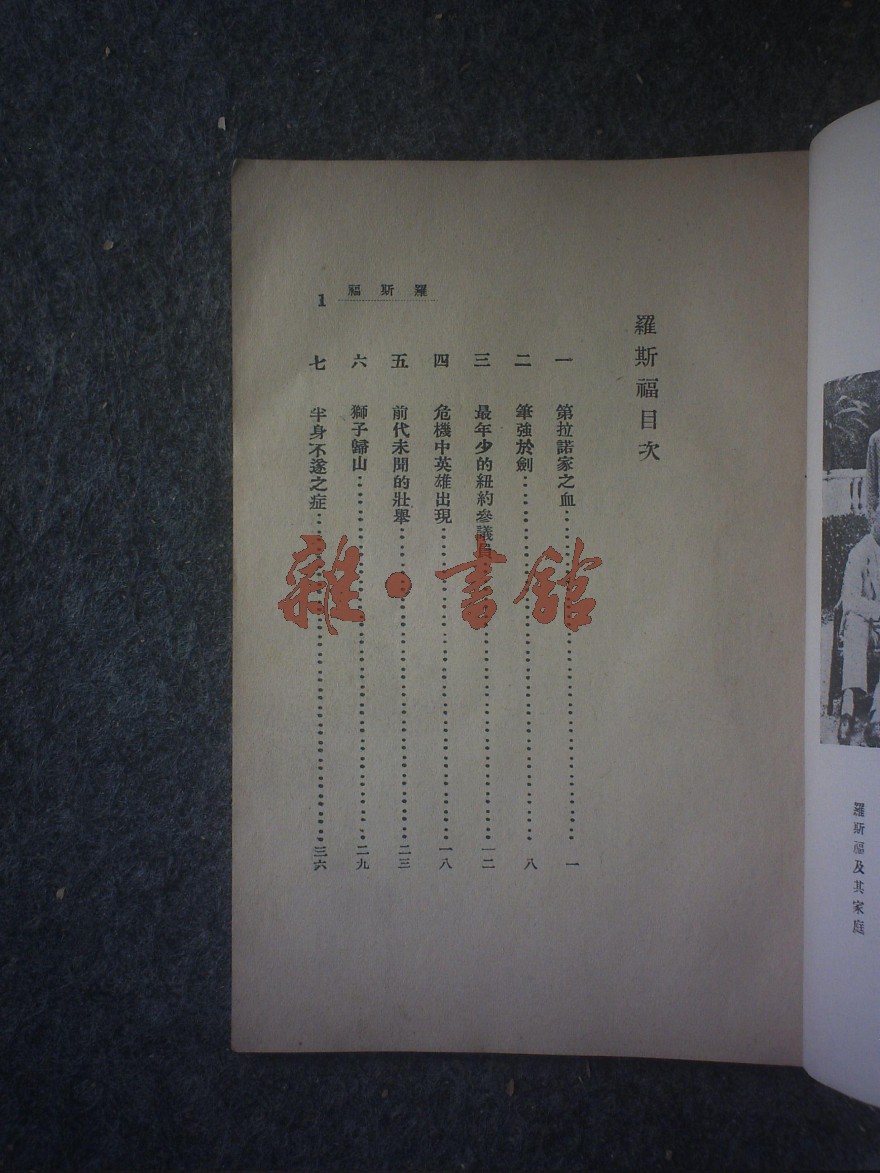 羅斯福及其家庭
羅斯福目次
一 第拉諾家之血………一
二 筆強於劍………八
三 最年少的紐約參議員………一二
四 危機中英雄出現………一八
五 前代未聞的壯舉………二三
六 獅子歸山………二九
七 半身不遂之症………三六
羅斯福
1
雜·書館